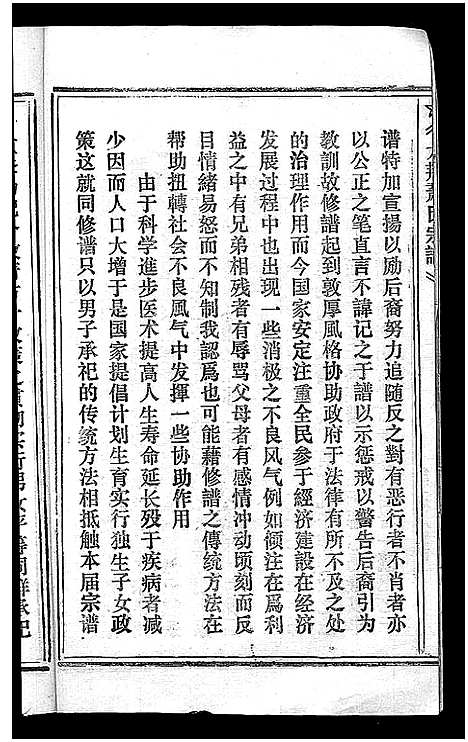 谱特加宣揚以励后裔努力追随反之對有恶行者不肖者亦
以公正之笔直言不諱记之于譜以示惩戒以警告后裔引为
教訓故修譜起到敦厚風格协助政府于法律有所不及之处
的治理作用而今国家安定注重全民参于經济建設在经济
发展过程中也出现一些消极之不良风气例如倾注在爲利
益之中有兄弟相残者有辱骂父母者有感情冲动顷刻而反
目情緒易怒而不知制我認爲也可能藉修譜之傳统方法在
帮助扭轉社会不良風气中发揮一些协助作用
由于科学進步医术提高人生寿命延长殁于疾病者减
少因而人口大增于是国家提倡计划生育实行独生子女政
策这就同修谱只以男子承祀的传统方法相抵触本届宗谱